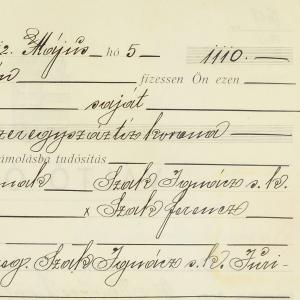 2. Május hó 5 - 1110.-
fizessen Ön ezen
saját
ezeregyszáztíz korona
számolásba tudósítás
Szak Ignácz s. k.
x Szak ferencz
Szak Ignácz s. k. Füri-